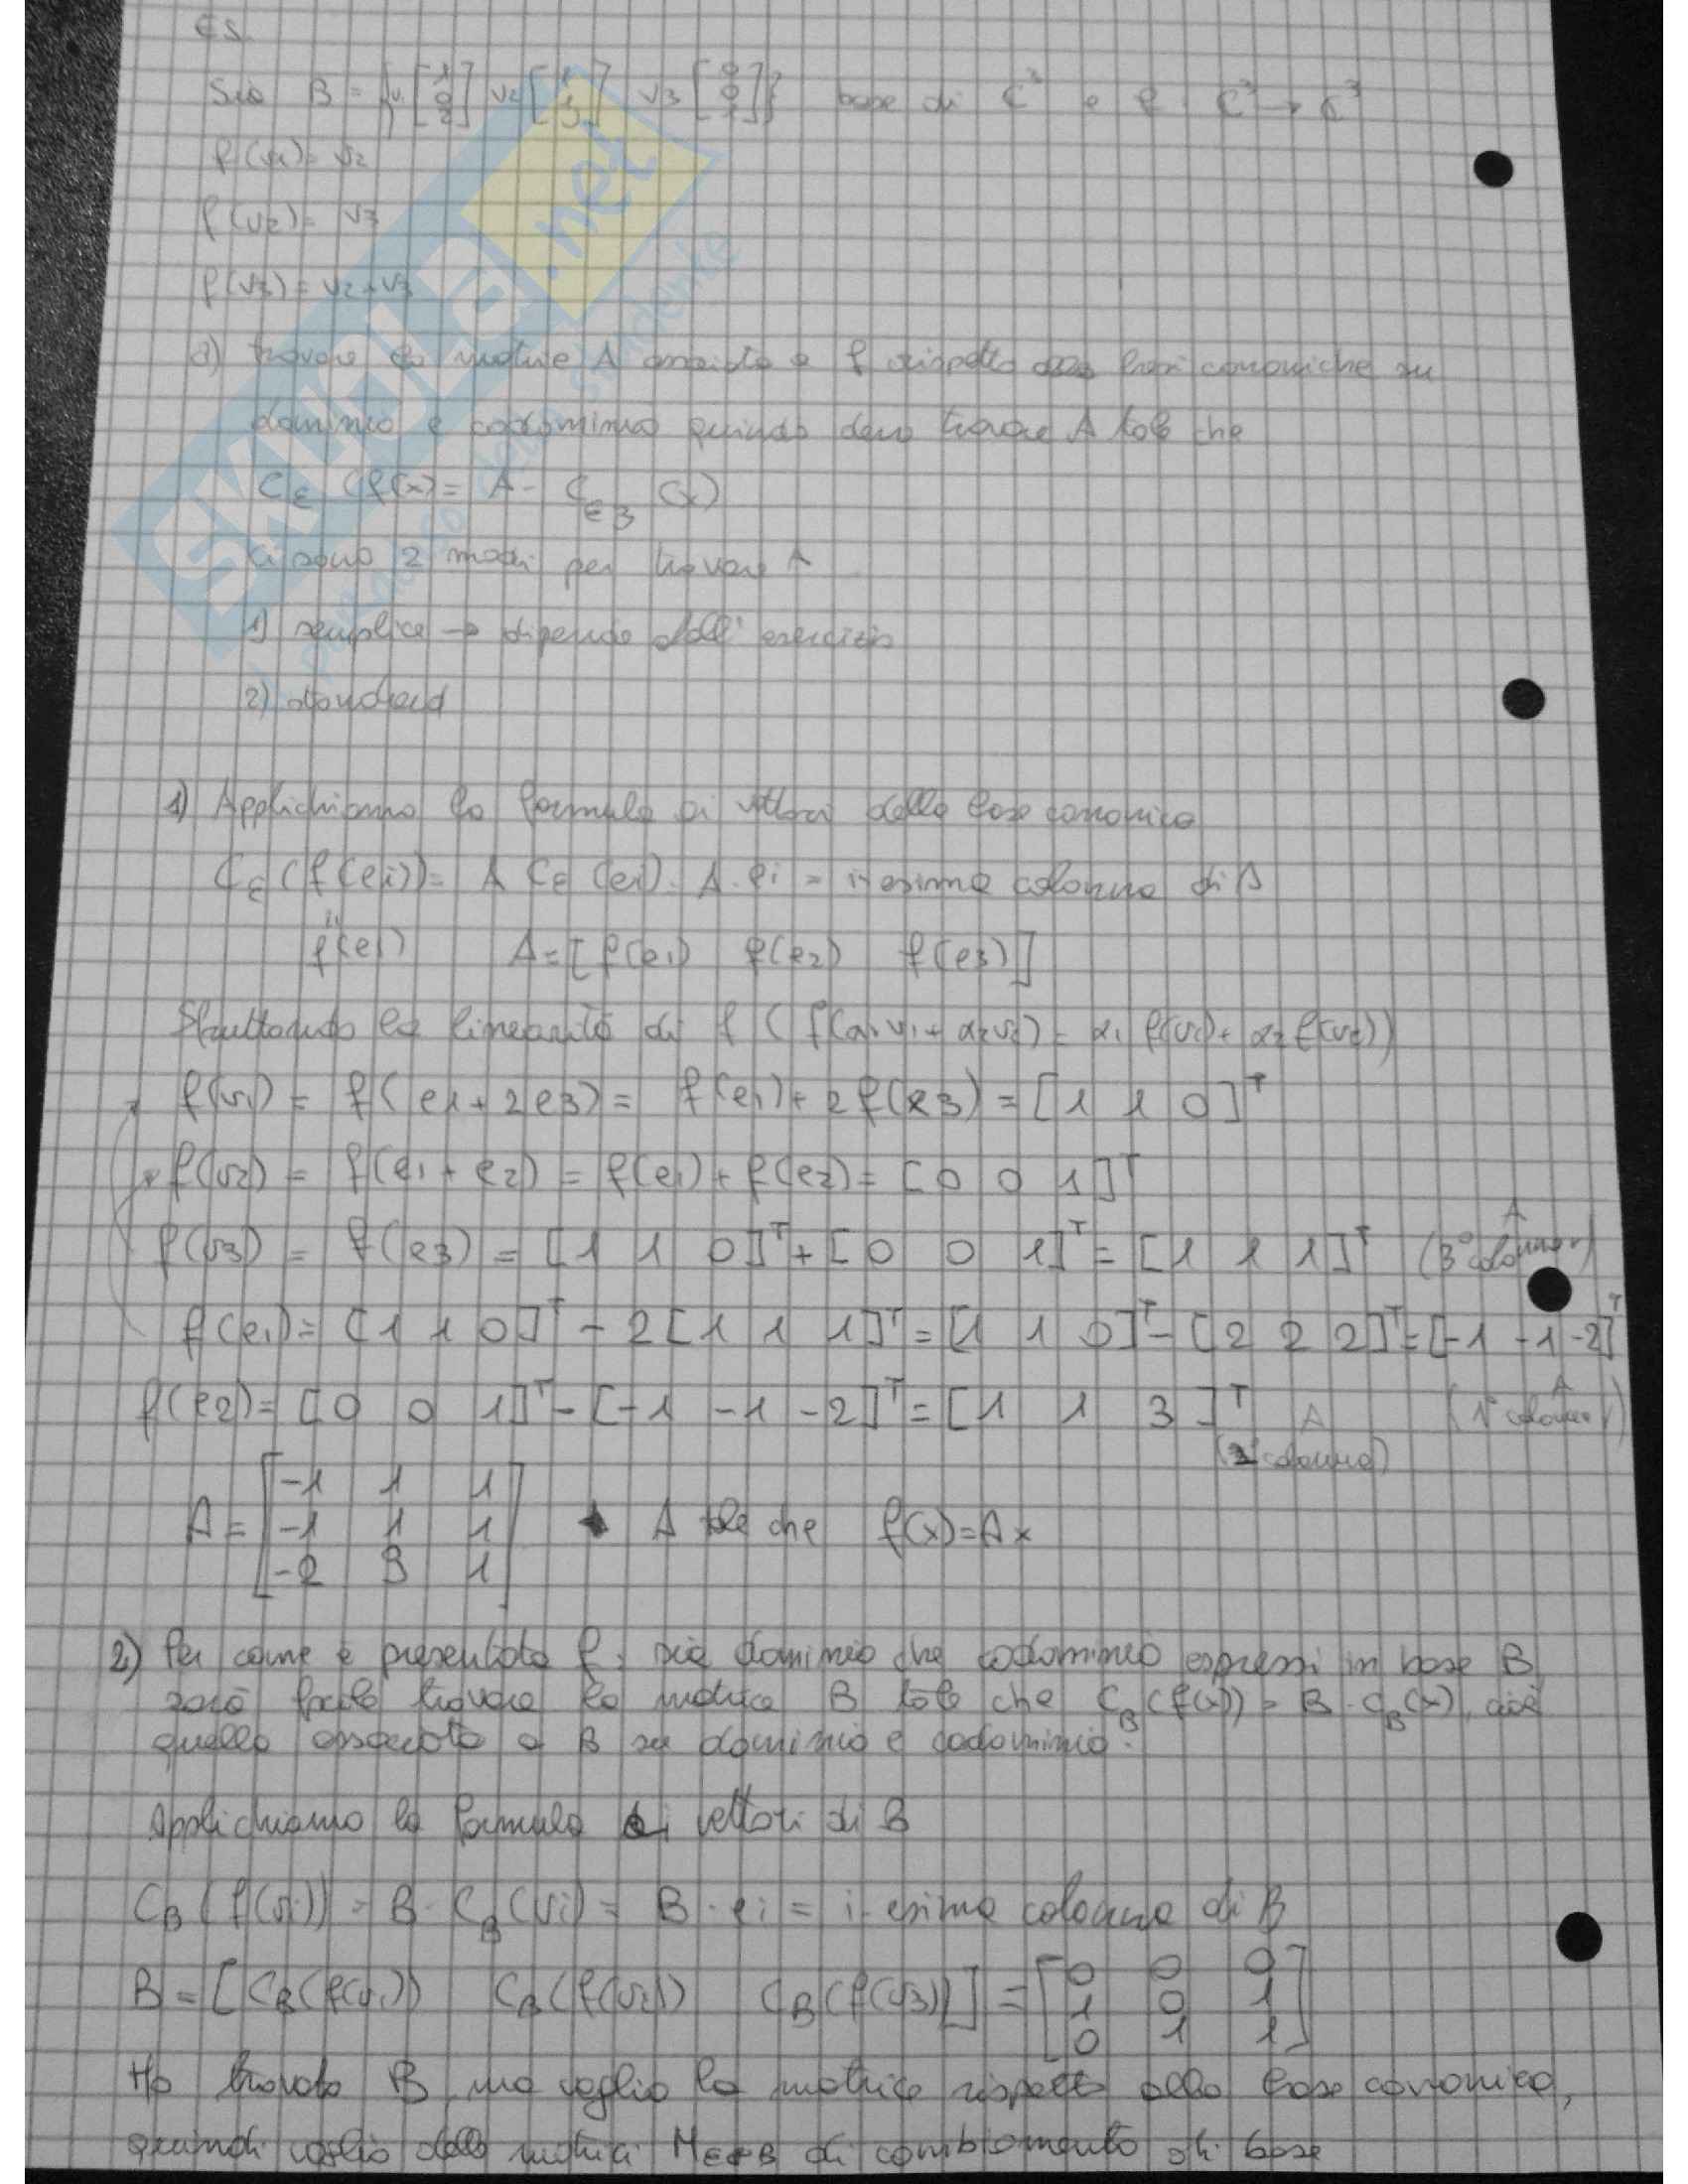 ES.
Sia B = { v1 [1 0 2] v2 [1 1 0] v3 [0 0 1] } base di C³ e f: C³ → C³
f(v1) = v2
f(v2) = v3
f(v3) = v2+v3
a) trovare la matrice A associata a f rispetto basi canoniche su
dominio e codominio quindi devo trovare A tale che
C_ε (f(x) = A · C_ε3 (x)
ci sono 2 modi per trovare A
1) semplice → dipende dall' esercizio
2) standard
1) Applichiamo la formula ai vettori della base canonica
C_ε (f(ei)) = A C_ε (ei) = A · ei = i-esima colonna di A
f(e1) A = [f(e1) f(e2) f(e3)]
Sfruttando la linearità di f ( f(α1 v1 + α2 v2) = α1 f(v1) + α2 f(v2))
f(v1) = f(e1 + 2e3) = f(e1) + 2 f(e3) = [1 1 0]^T
f(v2) = f(e1 + e2) = f(e1) + f(e2) = [0 0 1]^T
f(v3) = f(e3) = [1 1 0]^T + [0 0 1]^T = [1 1 1]^T (3° colonna) A
f(e1) = [1 1 0]^T - 2 [1 1 1]^T = [1 1 0]^T - [2 2 2]^T = [-1 -1 -2]^T
f(e2) = [0 0 1]^T - [-1 -1 -2]^T = [1 1 3]^T A (1° colonna) A
(2° colonna)
A = [-1 1 1
-1 1 1 A tale che f(x) = Ax
-2 3 1]
2) Per come è presentata f, sia dominio che codominio espressi in base B
sarà facile trovare la matrice B tale che C_B (f(x)) = B · C_B (x), cioè
quella associata a B su dominio e codominio.
Applichiamo la formula ai vettori di B
C_B (f(vi)) = B · C_B (vi) = B · ei = i-esima colonna di B
B = [C_B (f(v1)) C_B (f(v2)) C_B (f(v3))] = [0 0 0
1 0 1
0 1 1]
Ho trovato B, ma voglio la matrice rispetto alla base canonica,
quindi voglio delle matrici M_ε←B di cambiamento di base
SKUOLA.net